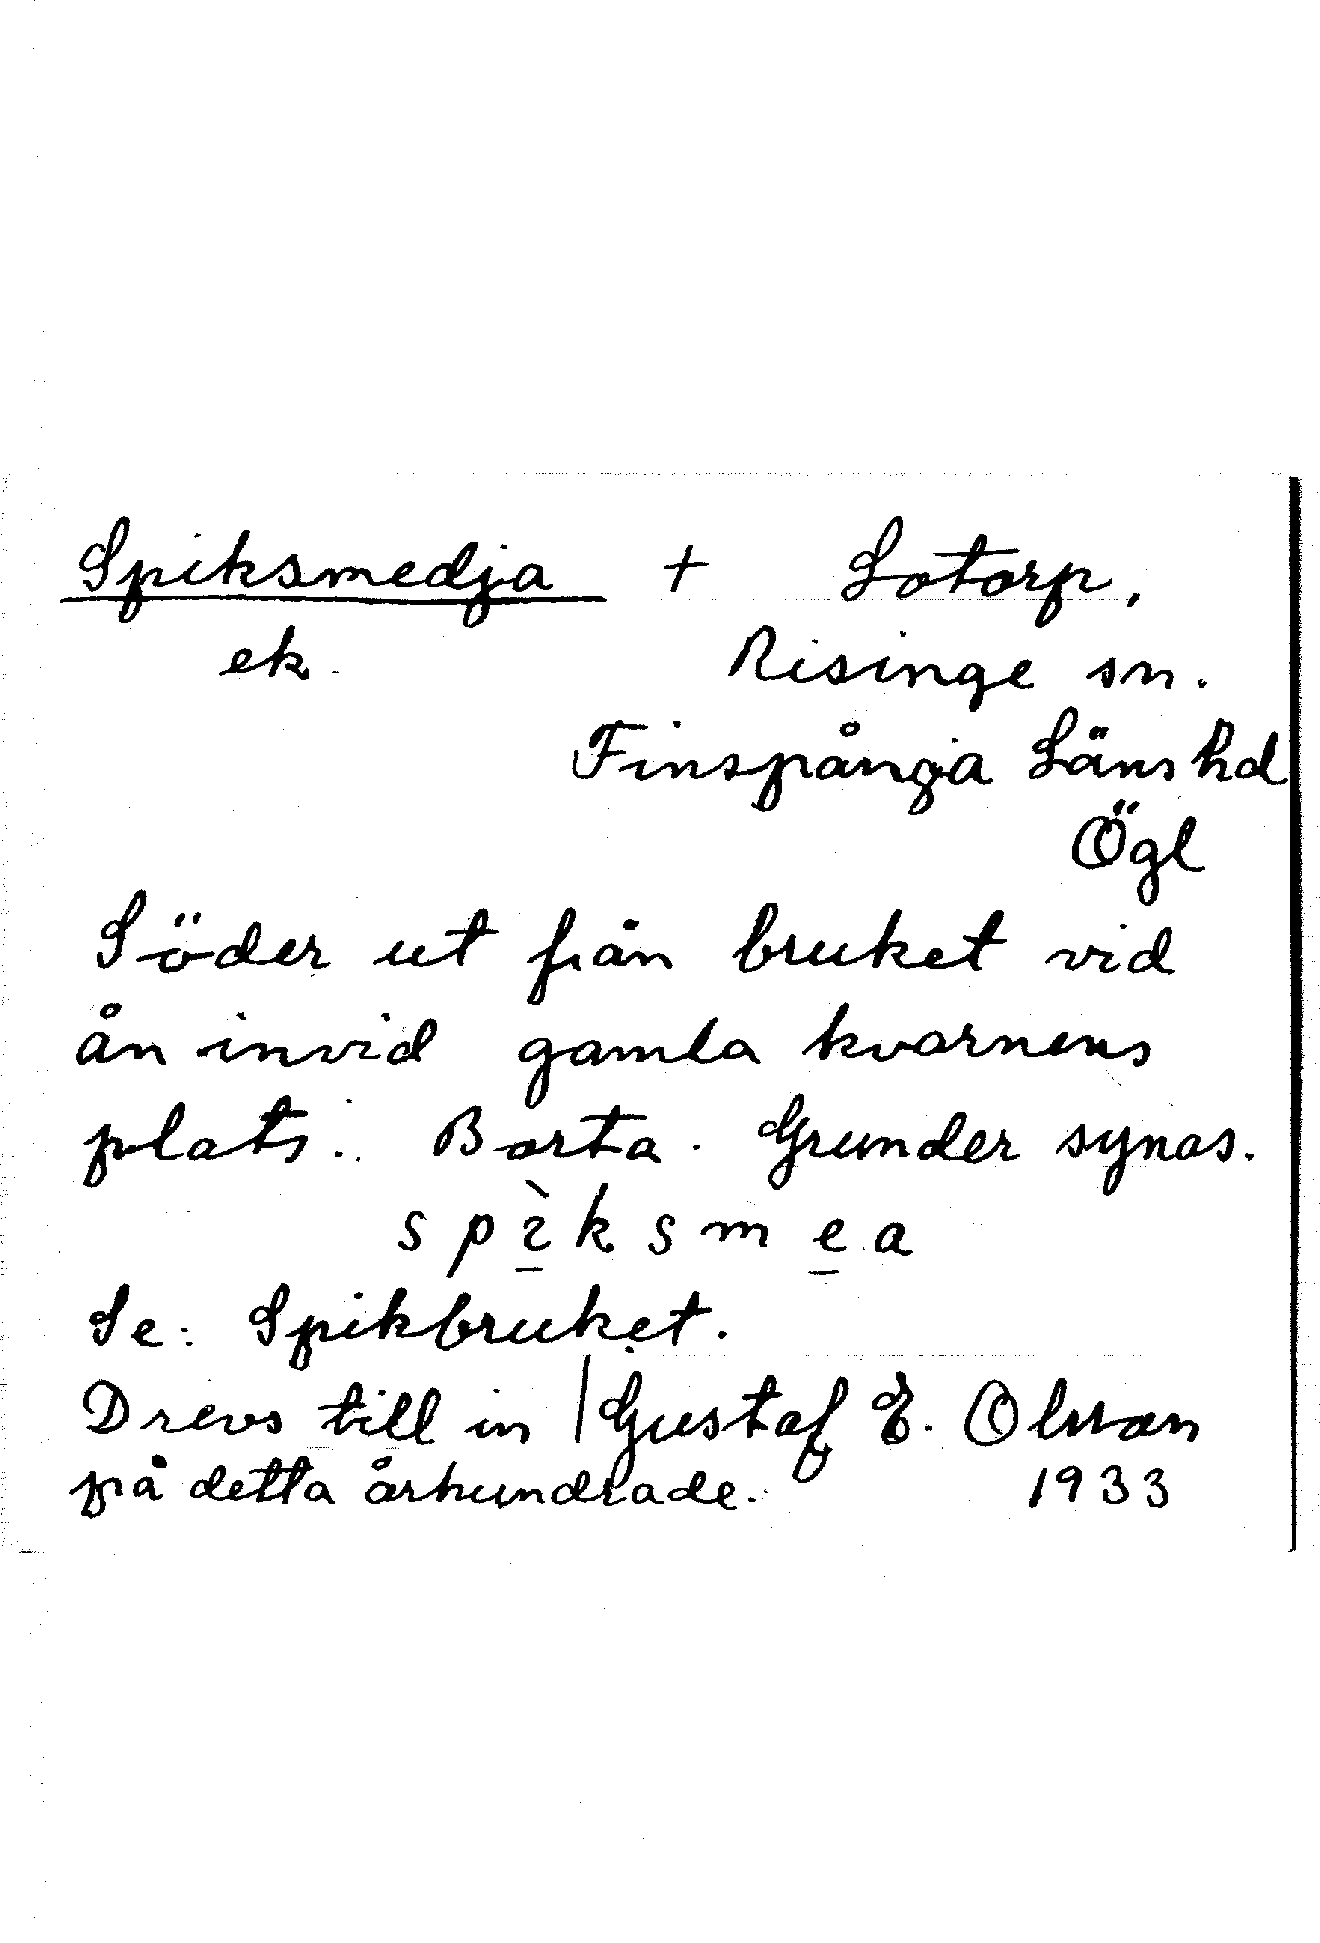 Spiksmedja + Lotorp,
ek. Risinge sn.
Finspånga Läns hd
Ögl
Söder ut från bruket vid
ån invid gamla kvarnens
plats. Borta. Grunder synas.
spìksmea
Se: Spikbruket.
Drevs till in | Gustaf E. Olsson
på detta århundrade. 1933